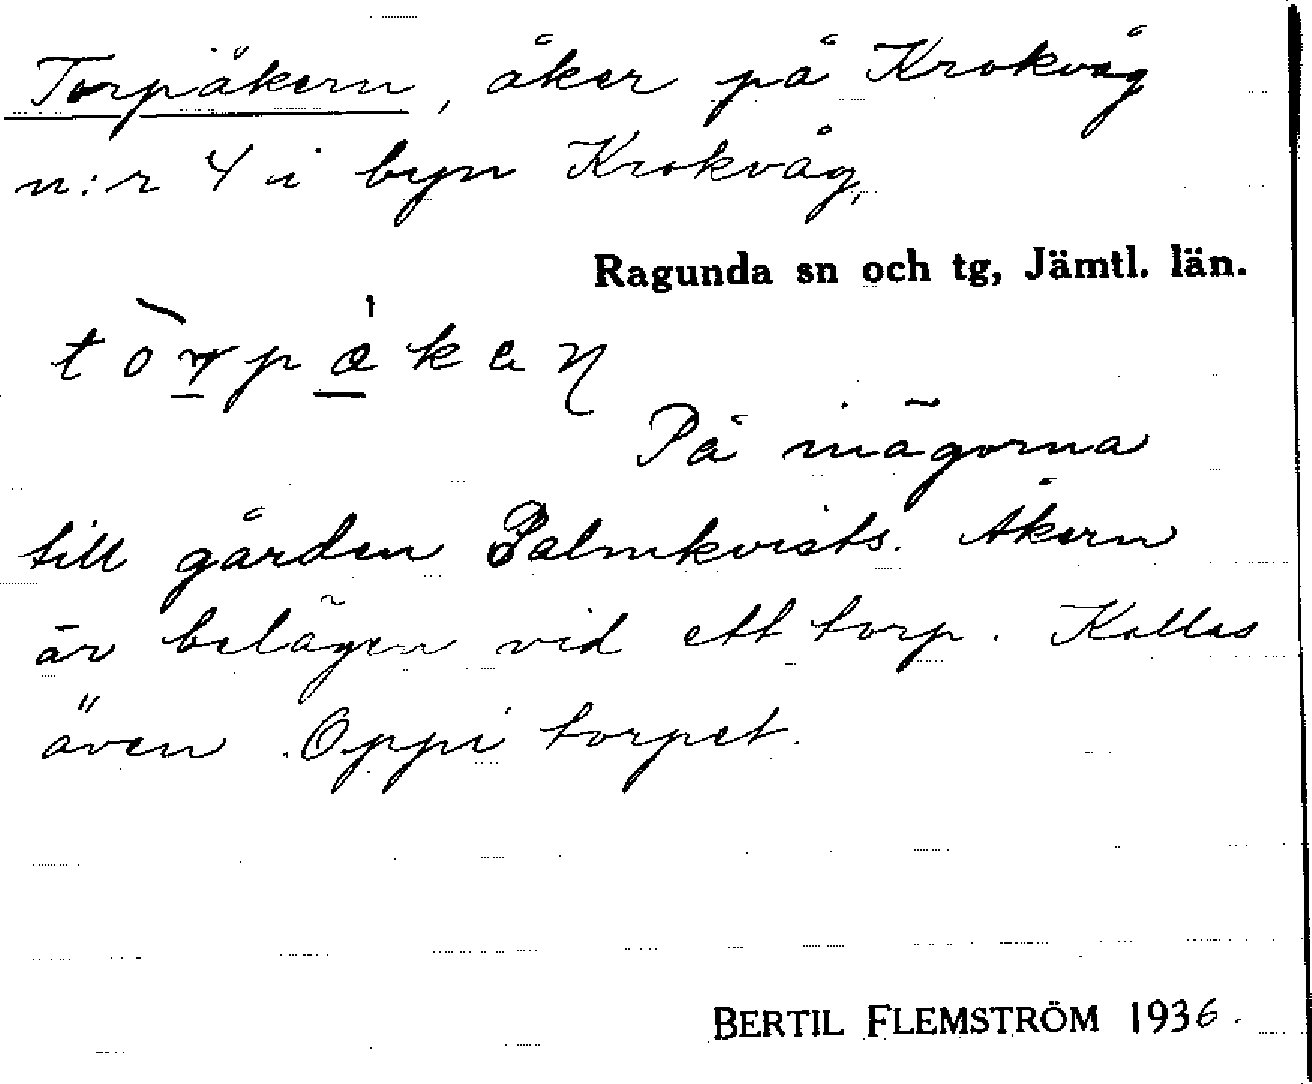 Torpåkern, åker på Krokvåg
n:r 4 i byn Krokvåg,
Ragunda sn och tg, Jämtl. län.
På inägorna
till gården Palmkvists. Åkern
är belägen vid ett torp. Kallas
även Oppi torpet.
BERTIL FLEMSTRÖM 1936.